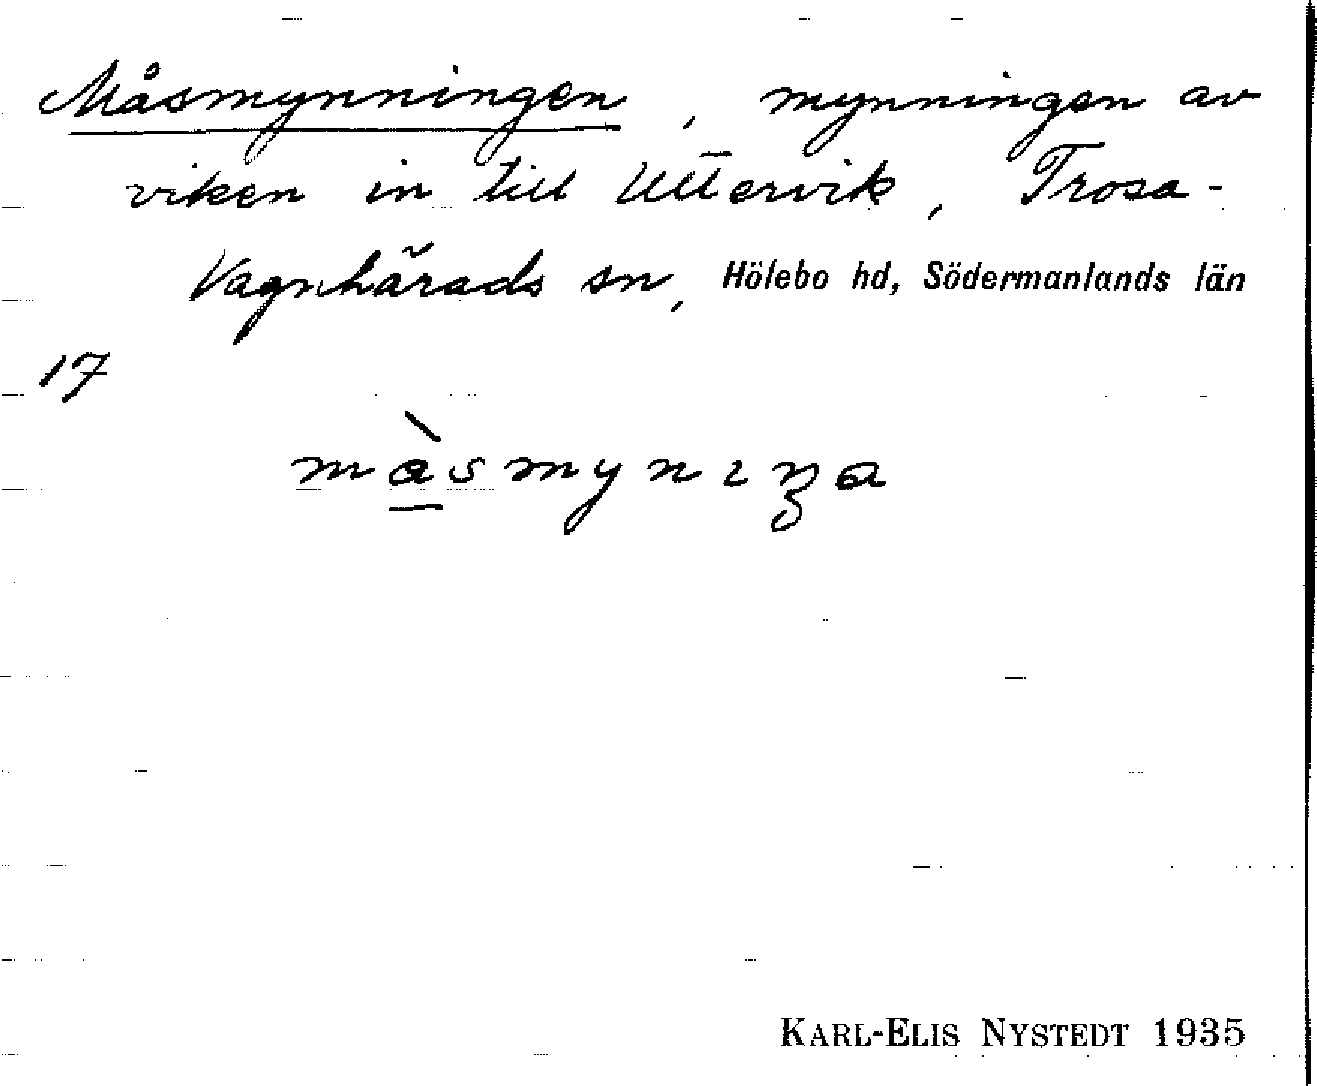 Måsmynningen, mynningen av
viken in till Uttervik, Trosa-
Vagnhärads sn, Hölebo hd, Södermanlands län
17
màsmynıŋa
KARL-ELIS NYSTEDT 1935